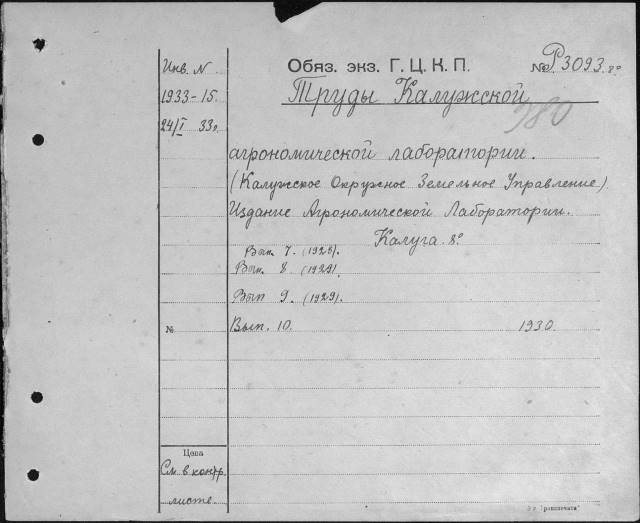 Инв. N
1933-15.
24/I 33г.
Обяз. экз. Г. Ц. К. П.
№ Р3093. 8°
Труды Калужской
980
агрономической лаборатории.
(Калужское Окружное Земельное Управление)
Издание Агрономической Лаборатории.
Калуга. 8°
Вып. 7. (1928).
Вып. 8. (1929).
Вып 9. (1929).
№
Вып. 10. 1930
Цена
См. в контр.
листе.